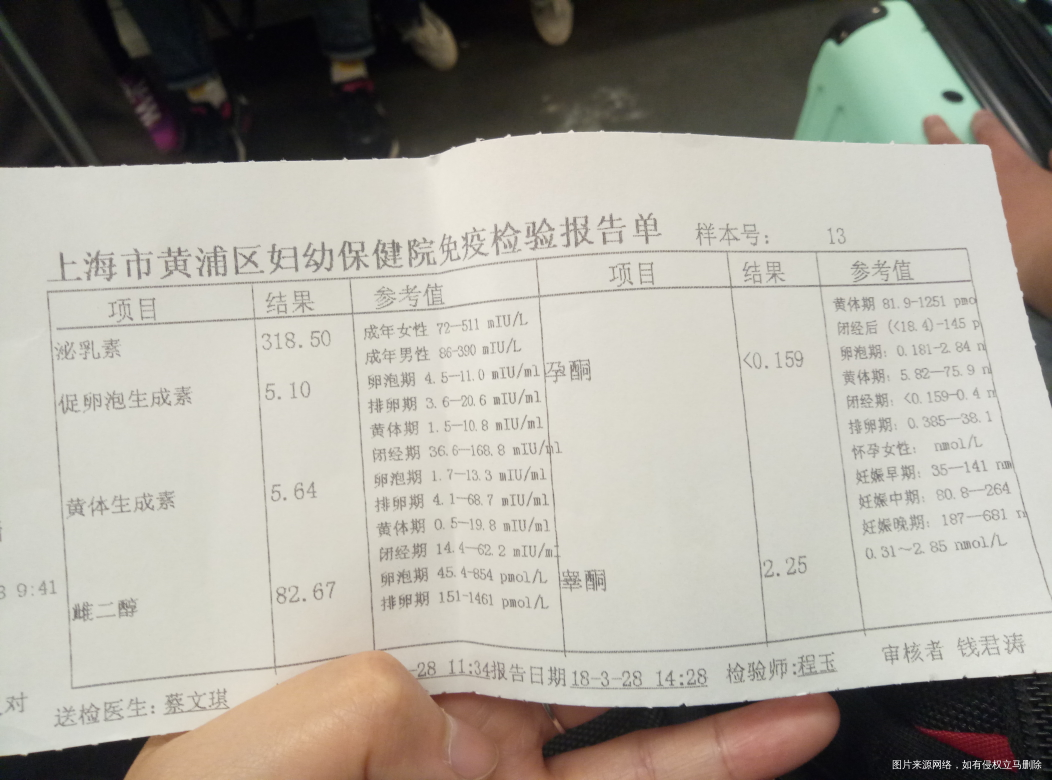 上海市黄浦区妇幼保健院免疫检验报告单 样本号: 13
项目 结果 参考值 项目 结果 参考值
泌乳素 318.50 成年女性 72—511 mIU/L
成年男性 86-390 mIU/L
促卵泡生成素 5.10 卵泡期 4.5—11.0 mIU/ml
排卵期 3.6—20.6 mIU/ml
黄体期 1.5—10.8 mIU/ml
闭经期 36.6—168.8 mIU/ml
黄体生成素 5.64 卵泡期 1.7—13.3 mIU/ml
排卵期 4.1—68.7 mIU/ml
黄体期 0.5—19.8 mIU/ml
闭经期 14.4—62.2 mIU/ml
雌二醇 82.67 卵泡期 45.4-854 pmol/L
排卵期 151-1461 pmol/L
黄体期 81.9-1251 pmo
闭经后 (<18.4)-145 p
孕酮 <0.159 卵泡期: 0.181-2.84 n
黄体期: 5.82—75.9 n
闭经期: <0.159-0.4 n
排卵期: 0.385—38.1
怀孕女性: nmol/L
妊娠早期: 35—141 nm
妊娠中期: 80.8—264
妊娠晚期: 187—681 n
睾酮 2.25 0.31～2.85 nmol/L
9:41
对
送检医生: 蔡文琪 -28 11:34 报告日期 18-3-28 14:28 检验师: 程玉 审核者 钱君涛
图片来源网络，如有侵权立马删除